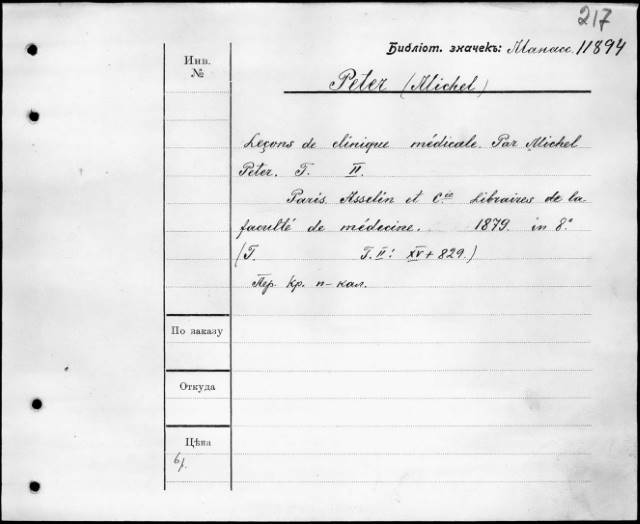 217
Библіот. значекъ: Манасс. 11894
Инв.
№
Peter (Michel)
Leçons de clinique médicale. Par Michel
Peter. T. II.
Paris. Asselin et Cie Libraires de la
faculté de médecine. 1879. in 8.°
(T. T. II: XV + 829.)
Пер. кр. п-кал.
По заказу
Откуда
Цѣна
6 р.